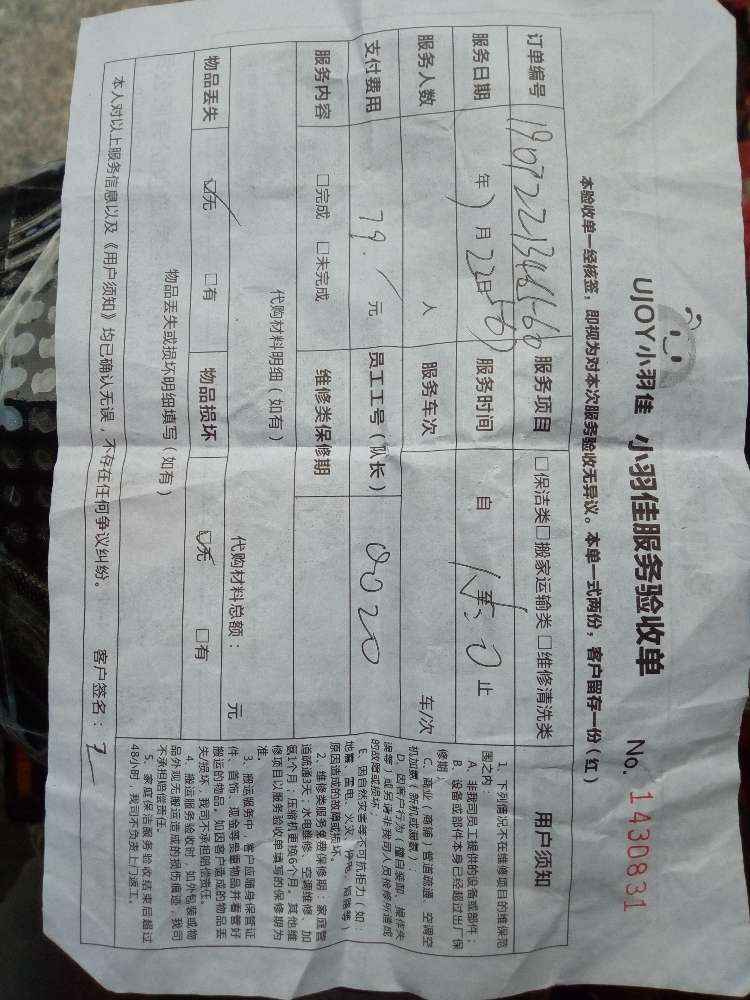 UJOY小羽佳 小羽佳服务验收单 No. 1430831
本验收单一经核签，即视为对本次服务验收无异议。本单一式两份，客户留存一份（红）
订单编号 服务项目 □保洁类□搬家运输类□维修清洗类
服务日期 年 7 月 22 日 服务时间 自 至 止
服务人数 人 服务车次 车/次
支付费用 79. 元 员工工号（队长） 0020
服务内容 □完成 □未完成 维修类保修期
代购材料明细（如有） 代购材料总额： 元
物品丢失 ☑无 □有 物品损坏 ☑无 □有
物品丢失或损坏明细填写（如有）
本人对以上服务信息以及《用户须知》均已确认无误，不存在任何争议纠纷。 客户签名：
用户须知
1、下列情况不在维修项目的维保范
围之内：
A、非我司员工提供的设备或部件；
B、设备或部件本身已经超过出厂保
修期；
C、商业（商铺）管道疏通、空调空
机加氨（新机或漏氨）；
D、因客户行为（擅自装卸、操作失
误等）或另请非我司人员维修所造成
的故障或损坏；
E、因自然灾害等不可抗拒力（如：
地震、雷电、火灾、停电、短路等）
原因造成的故障或损坏。
2、维修类服务免费保修期：家庭管
道疏通3天；水电维修、空调维修、加
氨1个月；压缩机更换6个月。其他维
修项目以服务验收单填写的保修期为
准。
3、搬运服务中，客户应随身保管证
件、首饰、现金等贵重物品并看管好
搬运的物品。如因客户造成的物品丢
失/损坏，我司不承担赔偿责任。
4、搬运服务验收时，如外包装或物
品外观无搬运造成的损伤痕迹，我司
不承担赔偿责任。
5、家庭保洁服务验收结束后超过
48小时，我司不负责上门返工。